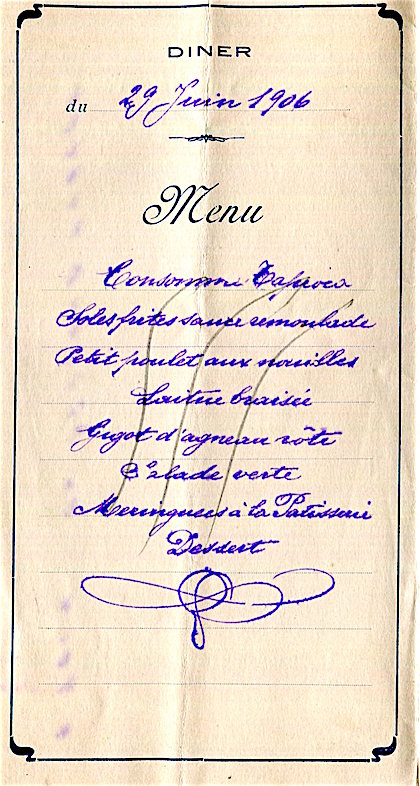 DINER
du 29 Juin 1906
Menu
Consommé Tapioca
Soles frites sauce remoulade
Petit poulet aux nouilles
Laitue braisée
Gigot d'agneau rôti
Salade verte
Meringuees à la Patisserie
Dessert